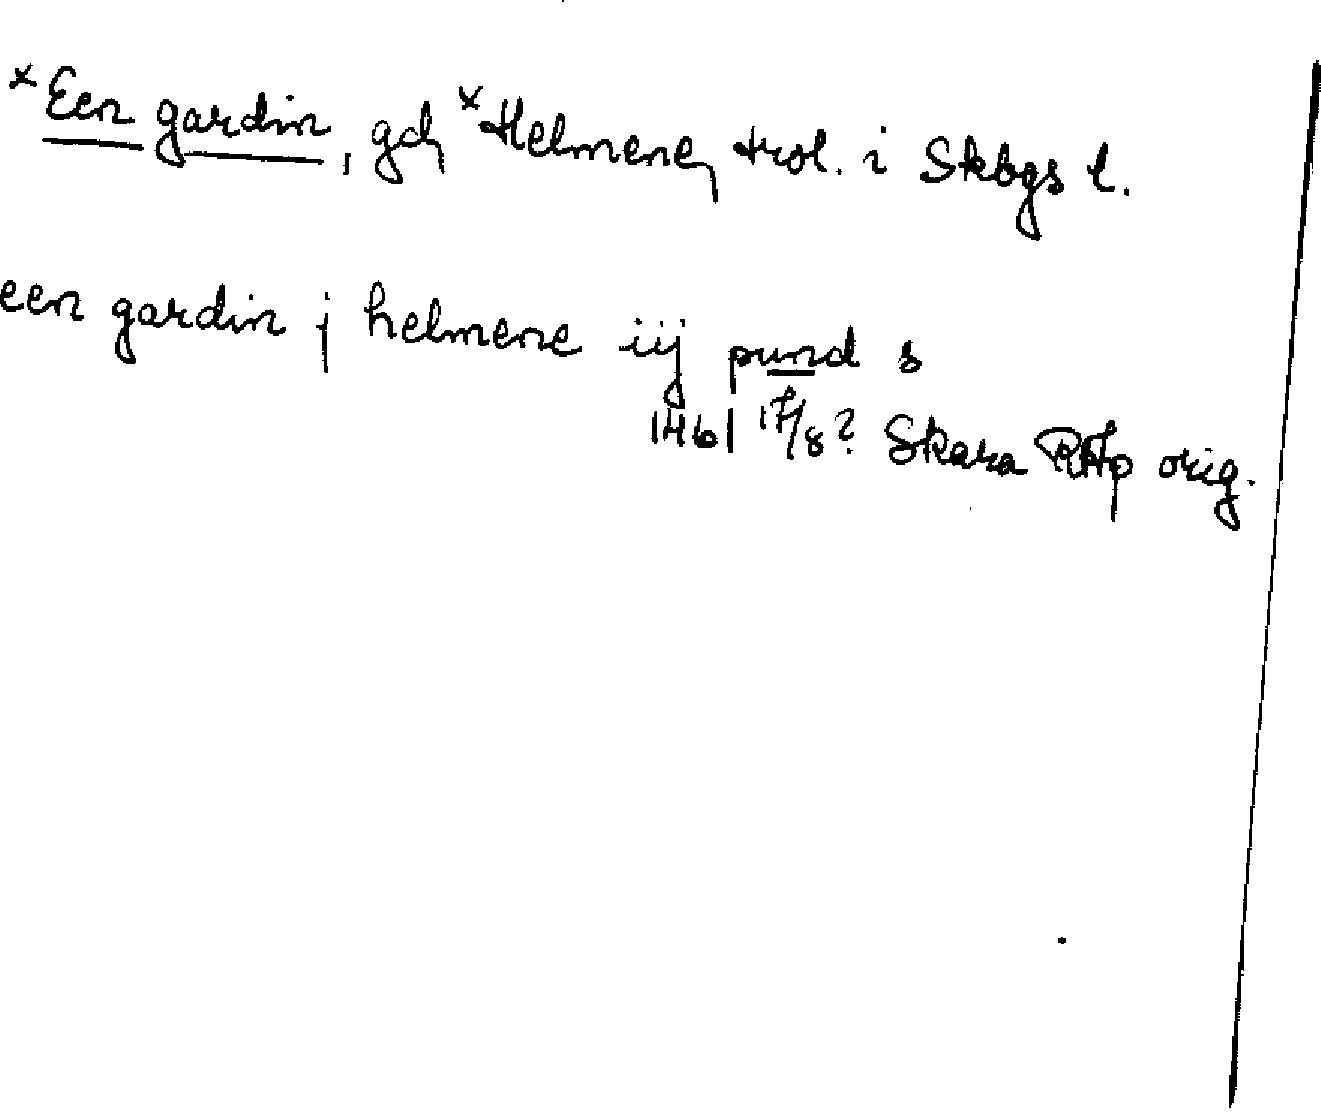 ×Een gardin, gd, ×Helmene, trol. i Skögs l.
een gardin j helmene iij pund s
1461 17/8? Skara RAp orig.